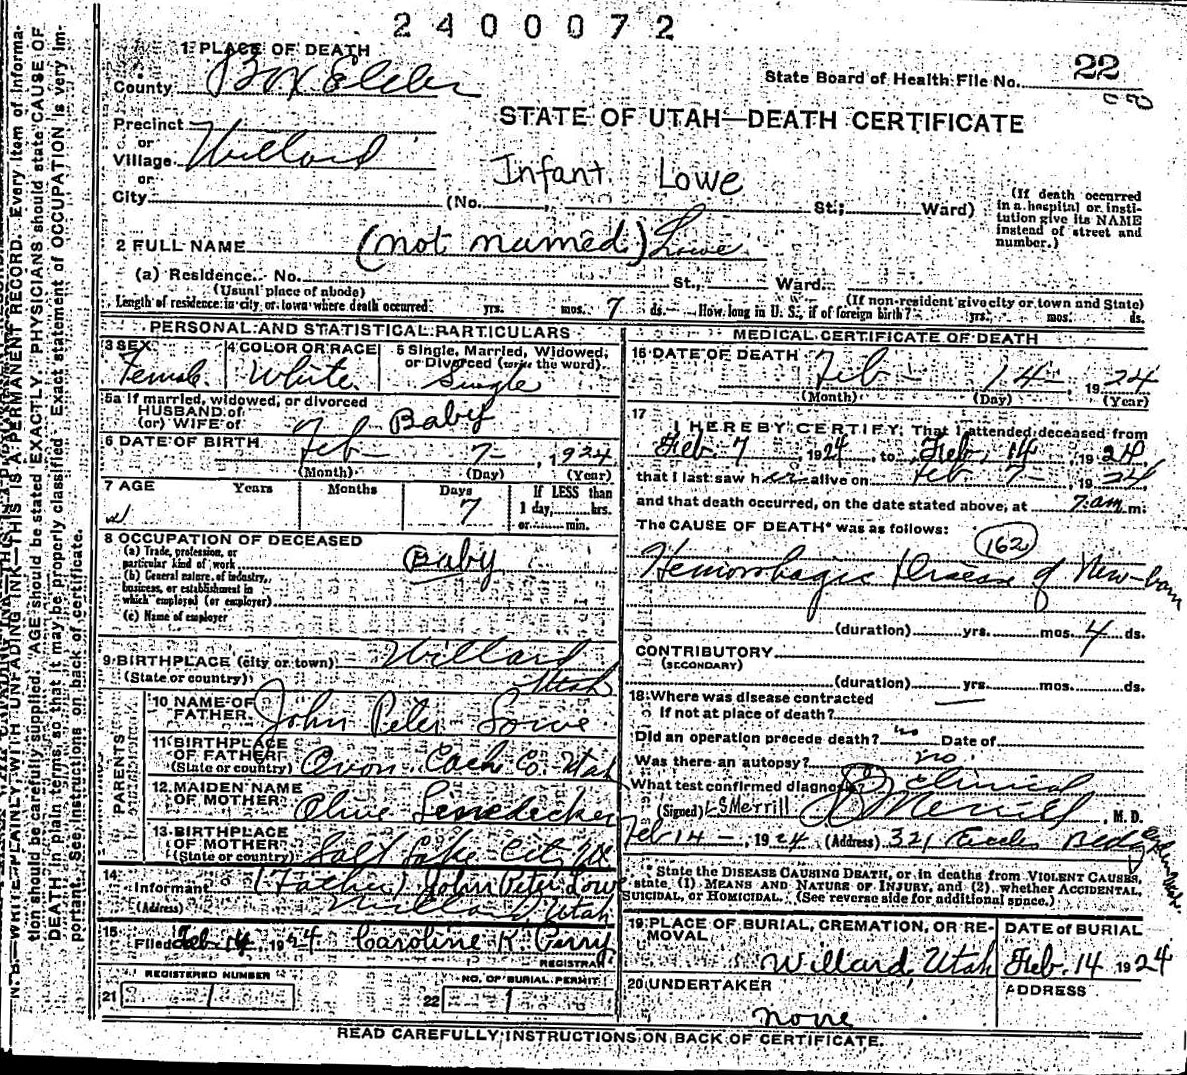 2400072
1 PLACE OF DEATH
County Box Elder
State Board of Health File No. 22
STATE OF UTAH—DEATH CERTIFICATE
Precinct
or
Village Willard
or
City (No. St.; Ward)
Infant Lowe
(If death occurred in a hospital or institution give its NAME instead of street and number.)
2 FULL NAME (not named) Lowe
(a) Residence. No. St., Ward.
(Usual place of abode) (If non-resident give city or town and State)
Length of residence in city or town where death occurred yrs. mos. 7 ds. How long in U. S., if of foreign birth? yrs. mos. ds.
PERSONAL AND STATISTICAL PARTICULARS
3 SEX Female
4 COLOR OR RACE White
5 Single, Married, Widowed, or Divorced (write the word) Single
5a If married, widowed, or divorced
HUSBAND of
(or) WIFE of Baby
6 DATE OF BIRTH Feb- 7-, 1924
(Month) (Day) (Year)
7 AGE Years Months Days 7 If LESS than 1 day, hrs. or min.
8 OCCUPATION OF DECEASED
(a) Trade, profession, or particular kind of work Baby
(b) General nature of industry, business, or establishment in which employed (or employer)
(c) Name of employer
9 BIRTHPLACE (city or town) Willard
(State or country) Utah
PARENTS
10 NAME OF FATHER John Peter Lowe
11 BIRTHPLACE OF FATHER (State or country) Avon Cach Co. Utah
12 MAIDEN NAME OF MOTHER Olive
13 BIRTHPLACE OF MOTHER (State or country) Salt Lake City, Ut
14 Informant (Father) John Peter Lowe
(Address) Willard Utah
15 Filed Feb-14, 1924 Caroline K. Perry
REGISTRAR
21 REGISTERED NUMBER 1
22 NO. OF BURIAL PERMIT 1
MEDICAL CERTIFICATE OF DEATH
16 DATE OF DEATH Feb- 14-, 1924
(Month) (Day) (Year)
17 I HEREBY CERTIFY, That I attended deceased from
Feb. 7, 1924, to Feb. 14, 1924
that I last saw her alive on Feb 7-, 1924
and that death occurred, on the date stated above, at 7 am m.
The CAUSE OF DEATH* was as follows:
162
Hemorrhagic Disease of New-born
(duration) yrs. mos. 4 ds.
CONTRIBUTORY
(SECONDARY)
(duration) yrs. mos. ds.
18 Where was disease contracted
If not at place of death?
Did an operation precede death? no Date of
Was there an autopsy? no.
What test confirmed diagnosis? clinical
(Signed) LS Merrill Merrill, M. D.
Feb 14-, 1924 (Address) 321 Eccles Bldg
* State the DISEASE CAUSING DEATH, or in deaths from VIOLENT CAUSES,
state (1) MEANS AND NATURE OF INJURY, and (2) whether ACCIDENTAL,
SUICIDAL, or HOMICIDAL. (See reverse side for additional space.)
19 PLACE OF BURIAL, CREMATION, OR REMOVAL Willard, Utah
DATE OF BURIAL Feb. 14 1924
20 UNDERTAKER none
ADDRESS
READ CAREFULLY INSTRUCTIONS ON BACK OF CERTIFICATE.
N. B.—WRITE PLAINLY WITH UNFADING INK—THIS IS A PERMANENT RECORD. Every item of information should be carefully supplied. AGE should be stated EXACTLY. PHYSICIANS should state CAUSE OF DEATH in plain terms, so that it may be properly classified. Exact statement of OCCUPATION is very important. See instructions on back of certificate.